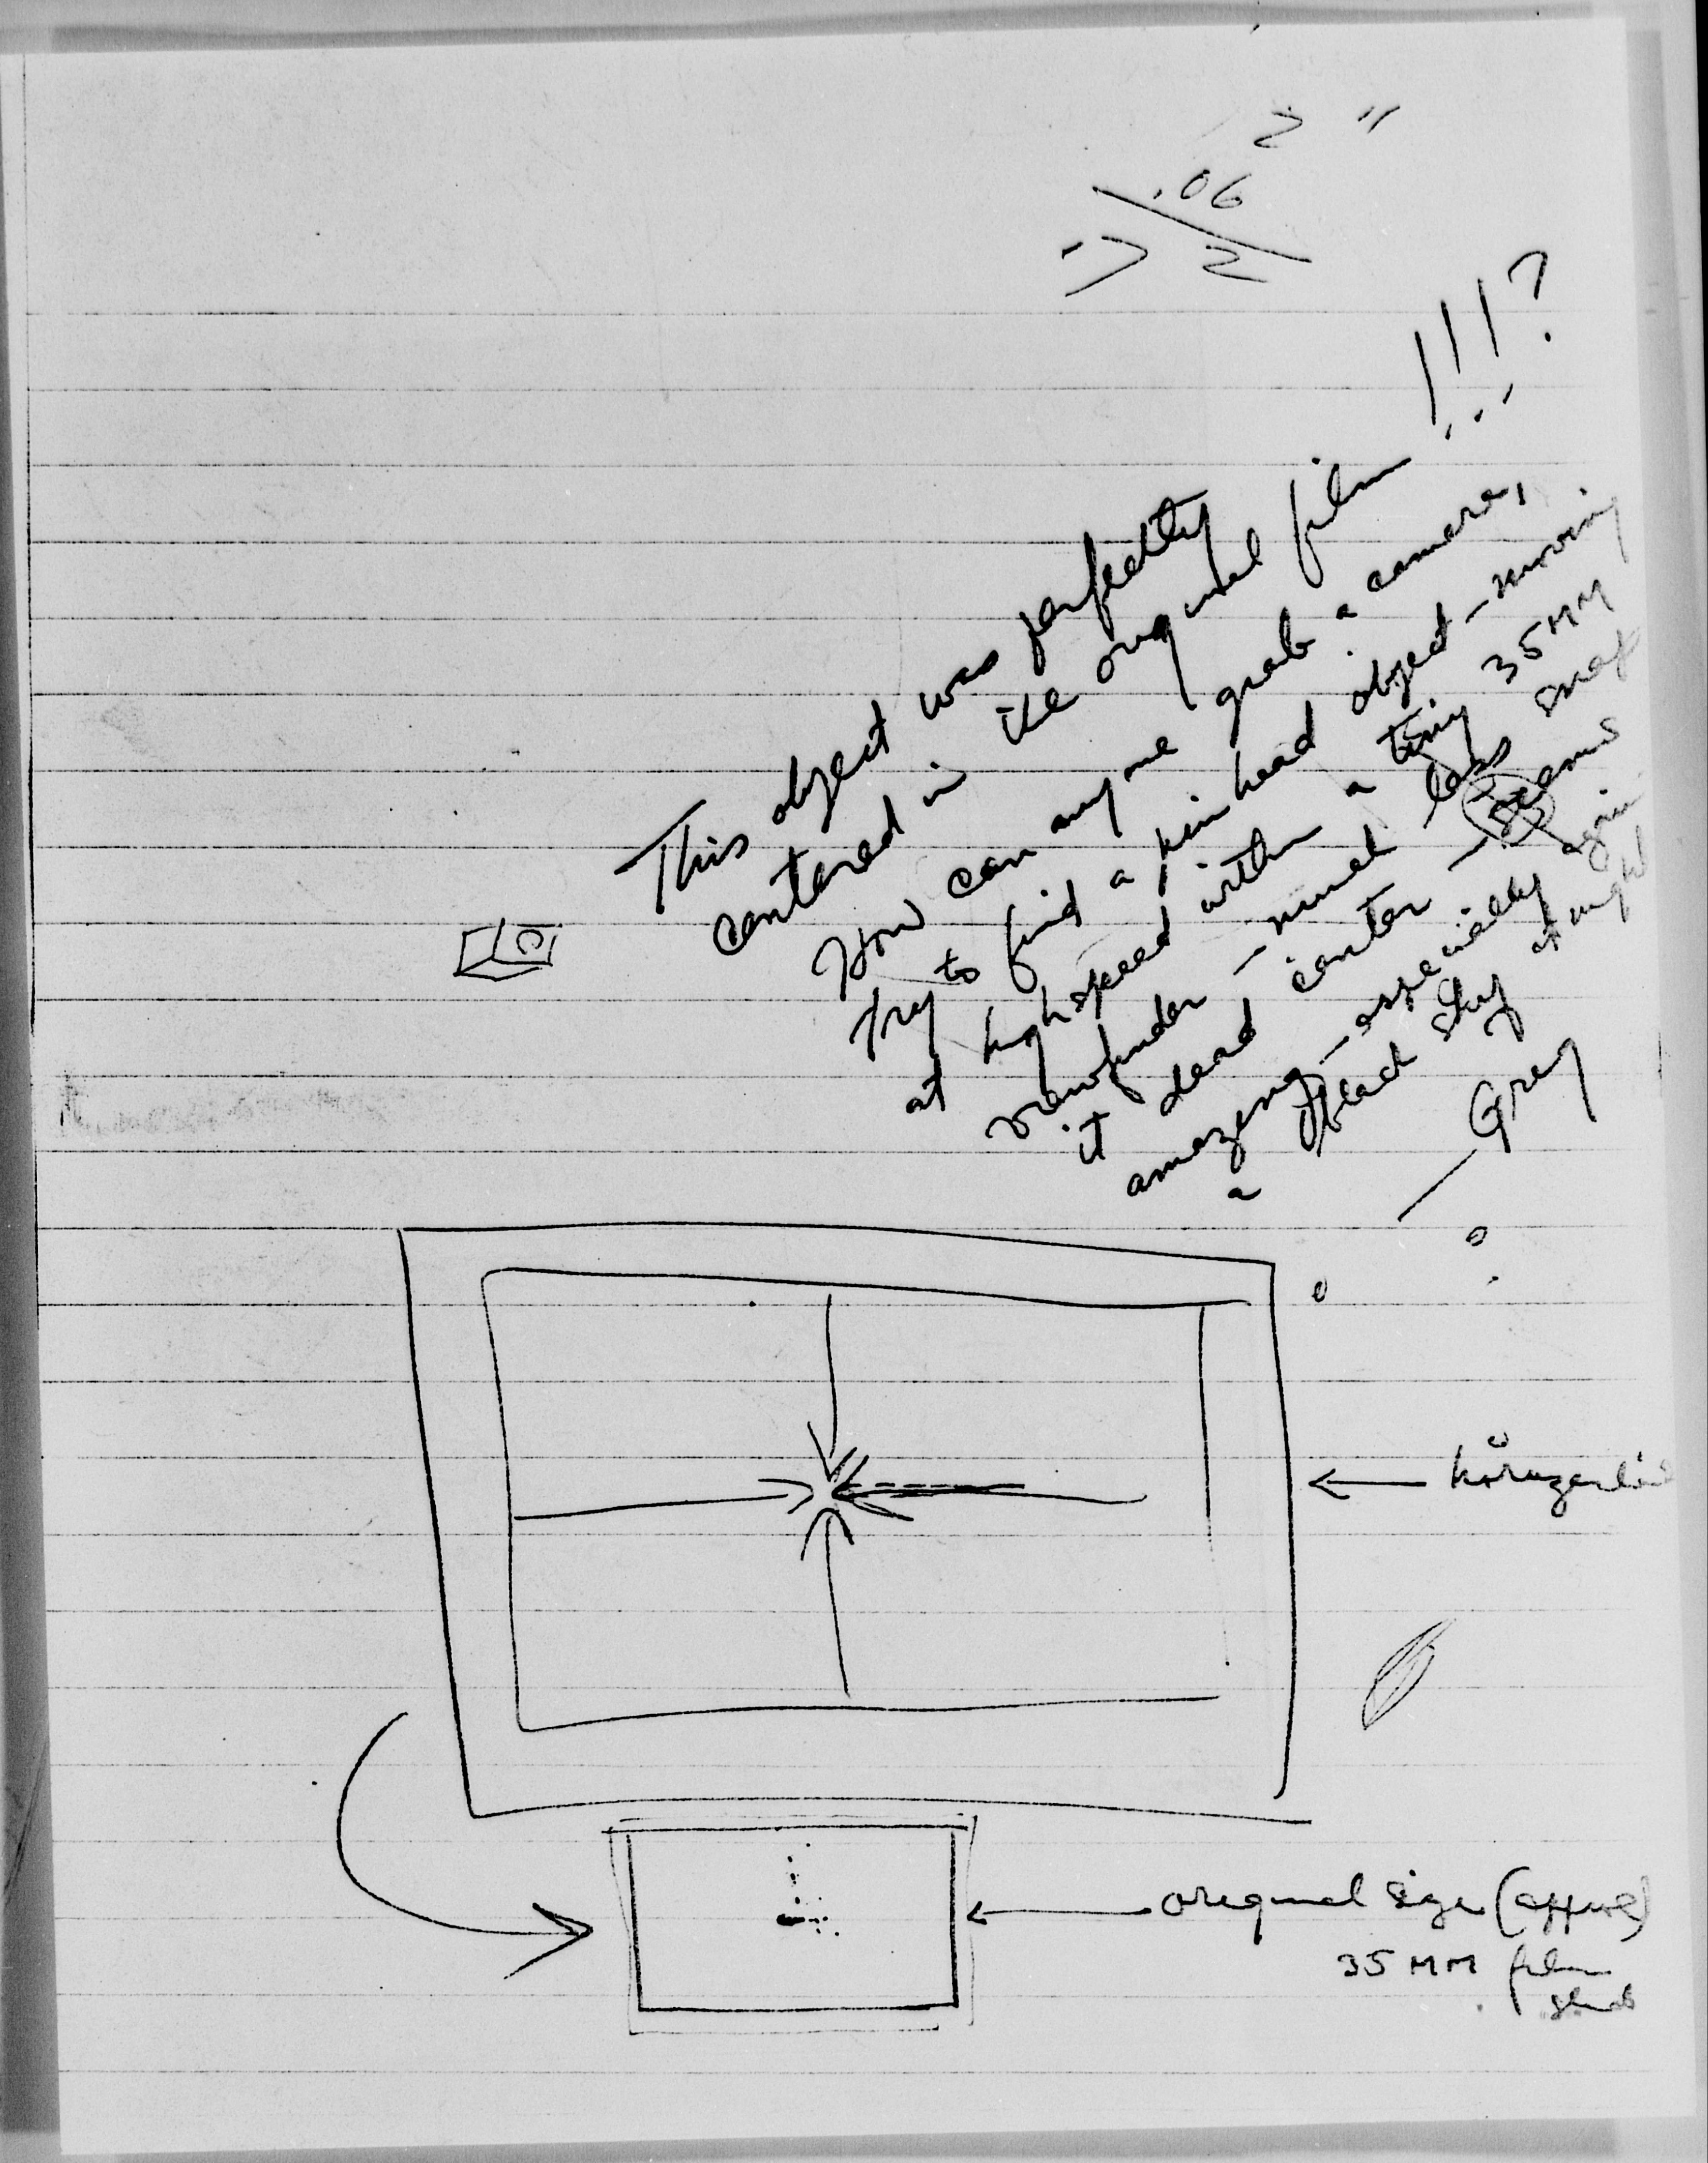 2 "
.06
2
This object was perfectly
centered in the original film !!!?
How can anyone grab a camera,
try to find a pin head object - moving
at high speed within a tiny 35 MM
viewfinder - much less snap
it dead center - seems
amazing - especially again
a black sky at night
— Grey
original size (approx)
35 MM film